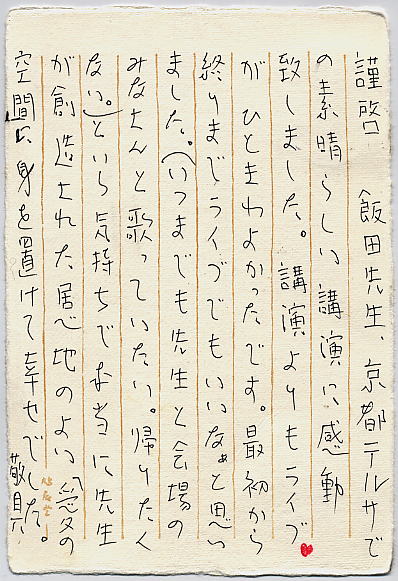 謹啓 飯田先生、京都テルサで
の素晴らしい講演に感動
致しました。講演よりもライブ
がひときわよかったです。最初から
終りまでライブでもいいなぁと思い
ました。(いつまでも先生と会場の
みなさんと歌っていたい。帰りたく
ない。)という気持ちで本当に先生
が創造された居心地のよい愛の
空間に身を置けて幸せでした。
敬具